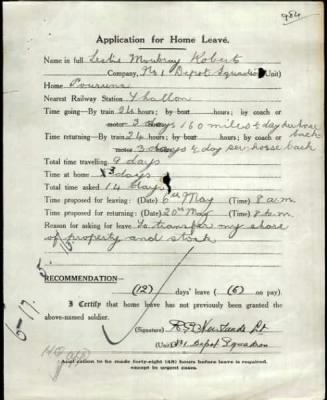 984
Application for Home Leave.
Name in full Leslie Moubray Roberts
Company, No 1 Depot Squadron (Unit)
Home
Nearest Railway Station Thallon
Time going—By train 24 hours; by boat hours; by coach or
motor 3 days 160 miles & day per horse back
Time returning—By train 24 hours; by boat hours; by coach or
motor 3 days & day per horse back
Total time travelling 9 days
Time at home 3 days
Total time asked 14 days
Time proposed for leaving: (Date) 6th May (Time) 8 a.m.
Time proposed for returning: (Date) 20th May (Time) 8 p.m.
Reason for asking for leave To transfer my share
of property and stock
RECOMMENDATION—
(12) days' leave (6) on pay.
I Certify that home leave has not previously been granted the
above-named soldier.
(Signature) Lt
(Unit) No 1 Depot Squadron
Application to be made forty-eight (48) hours before leave is required,
except in urgent cases.